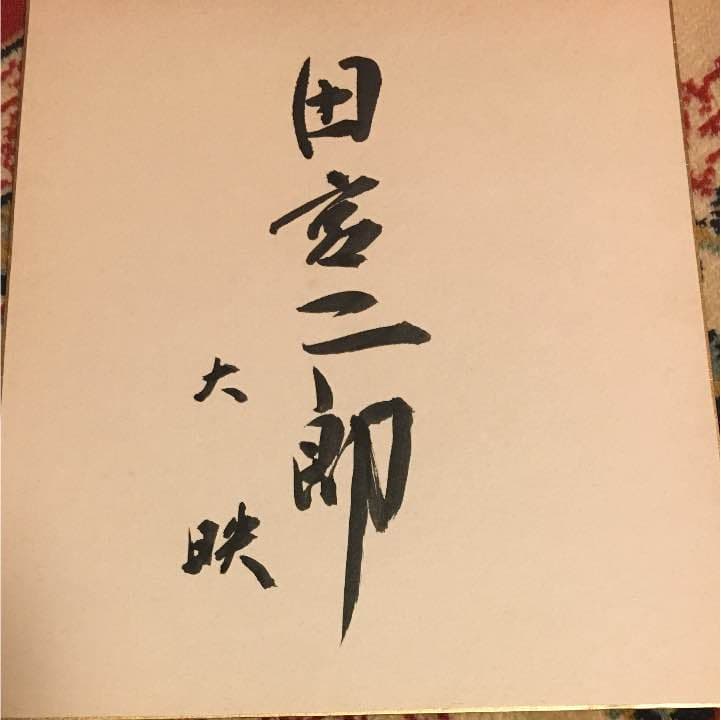 田宮二郎
大映